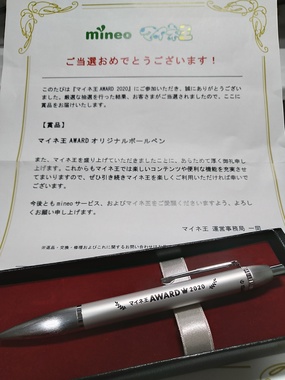 mineo マイネ王
ご当選おめでとうございます！
このたびは『マイネ王 AWARD 2020』にご参加いただき、誠にありがとうござい
ました。厳選な抽選を行った結果、お客さまがご当選されましたので、ここに
賞品をお届けいたします。
【賞品】
マイネ王 AWARD オリジナルボールペン
また、マイネ王を盛り上げていただきましたことに、あらためて厚く御礼申し
上げます。これからもマイネ王では楽しいコンテンツや便利な機能を充実させ
てまいりますので、ぜひ引き続きマイネ王を楽しくご利用いただければ幸いで
ございます。
今後とも mineo サービス、およびマイネ王をご愛顧くださいますよう、よろし
くお願い申し上げます。
マイネ王 運営事務局 一同
※返品・交換・修理およびこれに関するお問い合わせは
マイネ王 AWARD 2020